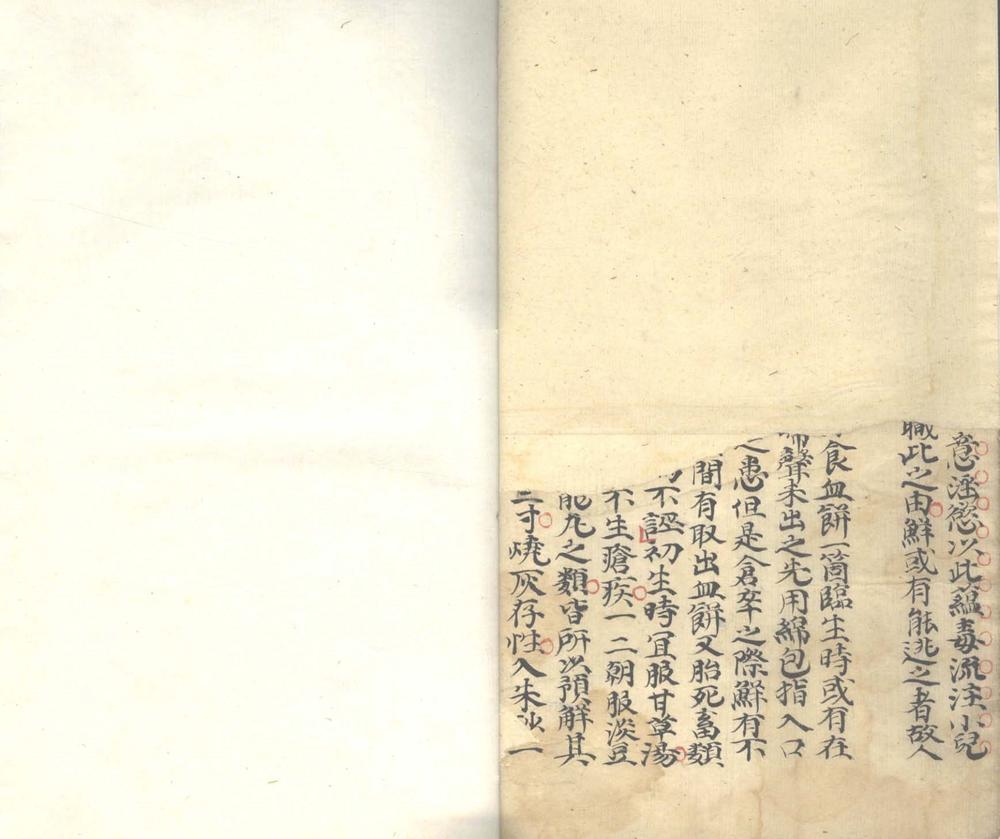 意淫慾以此蘊毒流注小兒
職此之由鮮或有能逃之者故人
食血餅一箇臨生時或有在
啼聲未出之先用綿包指入口
之患但是倉卒之際鮮有不
間有取出血餅又胎死畜類
不誣初生時宜服甘草湯
不生瘡疾一二朝服淡豆
龍丸之類皆所以預解其
三寸燒灰存性入朱砂一